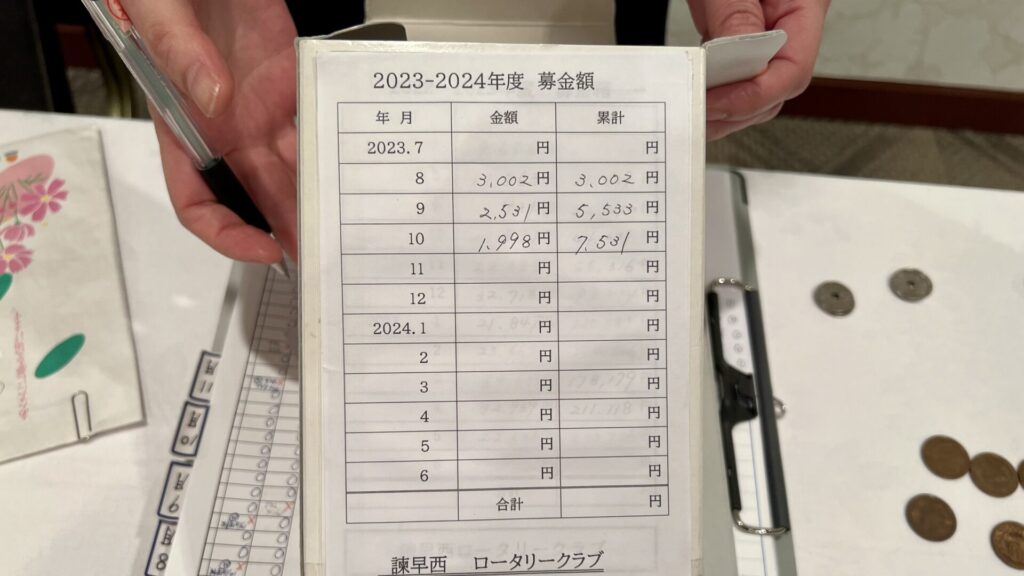 2023-2024年度 募金額
年 月 金額 累計
2023.7 円 円
8 3,002円 3,002円
9 2,531円 5,533円
10 1,998円 7,531円
11 円 円
12 円 円
2024.1 円 円
2 円 円
3 円 円
4 円 円
5 円 円
6 円 円
合計 円
諫早西 ロータリークラブ
11月
10月
9月
8月